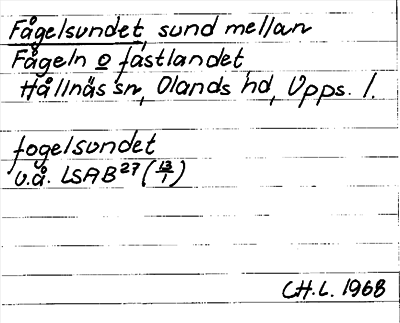 Fågelsundet, sund mellan
Fågeln o fastlandet,
Hållnäs sn, Olands hd, Upps. l.
fogelsundet
u.å. LSAB 27 (13/1)
CH.L. 1968